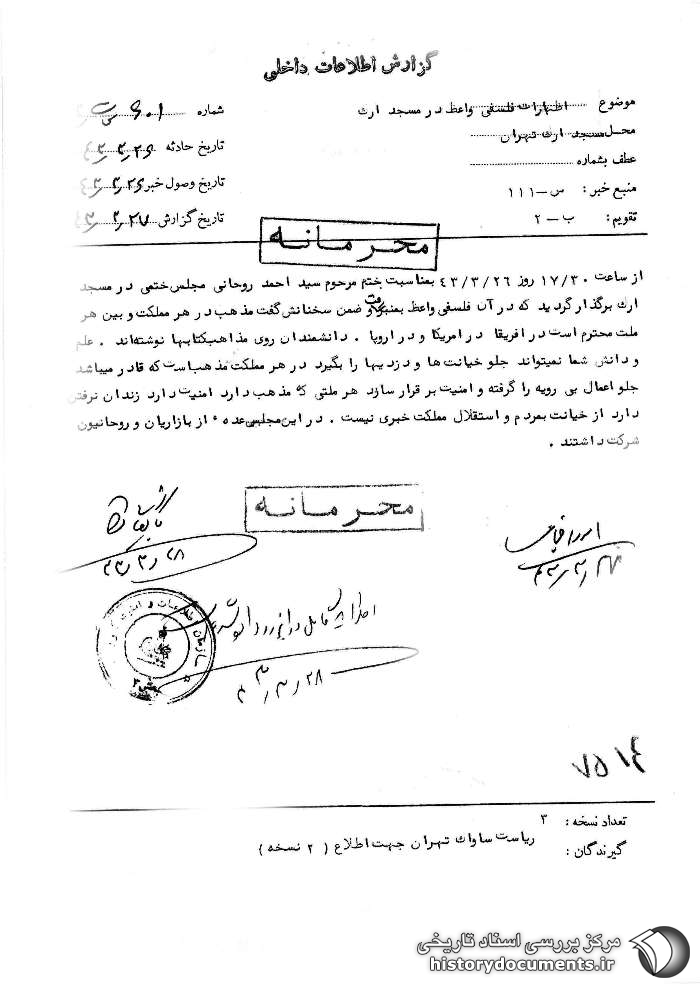 گزارش اطلاعات داخلی
موضوع اظهارات فلسفی واعظ در مسجد ارک
محل مسجد ارک تهران
عطف بشماره
منبع خبر: س - ۱۱۱
تقویم: ب - ۲
شماره ۶۰۱
تاریخ حادثه
تاریخ وصول خبر
تاریخ گزارش
محرمانه
از ساعت ۱۷/۳۰ روز ۴۳/۳/۲۶ بمناسبت ختم مرحوم سید احمد روحانی مجلس ختمی در مسجد
ارک برگذار گردید که در آن فلسفی واعظ بمنبر رفت و ضمن سخنانش گفت مذهب در هر مملکت و بین هر
ملت محترم است در افریقا در امریکا و در اروپا . دانشمندان روی مذاهب کتابها نوشته‌اند . علم
و دانش شما نمیتواند جلو خیانت ها و دزدیها را بگیرد در هر مملکت مذهب است که قادر میباشد
جلو اعمال بی رویه را گرفته و امنیت بر قرار سازد هر ملتی که مذهب دارد امنیت دارد زندان نرفتن
دارد از خیانت بمردم و استقلال مملکت خبری نیست . در این مجلس عده ء از بازاریان و روحانیون
شرکت داشتند .
محرمانه
۲۸
۲۸
سازمان اطلاعات و امنیت
۷۵۱۴
تعداد نسخه: ۳
گیرندگان: ریاست ساواک تهران جهت اطلاع ( ۲ نسخه )
مرکز بررسی اسناد تاریخی
historydocuments.ir